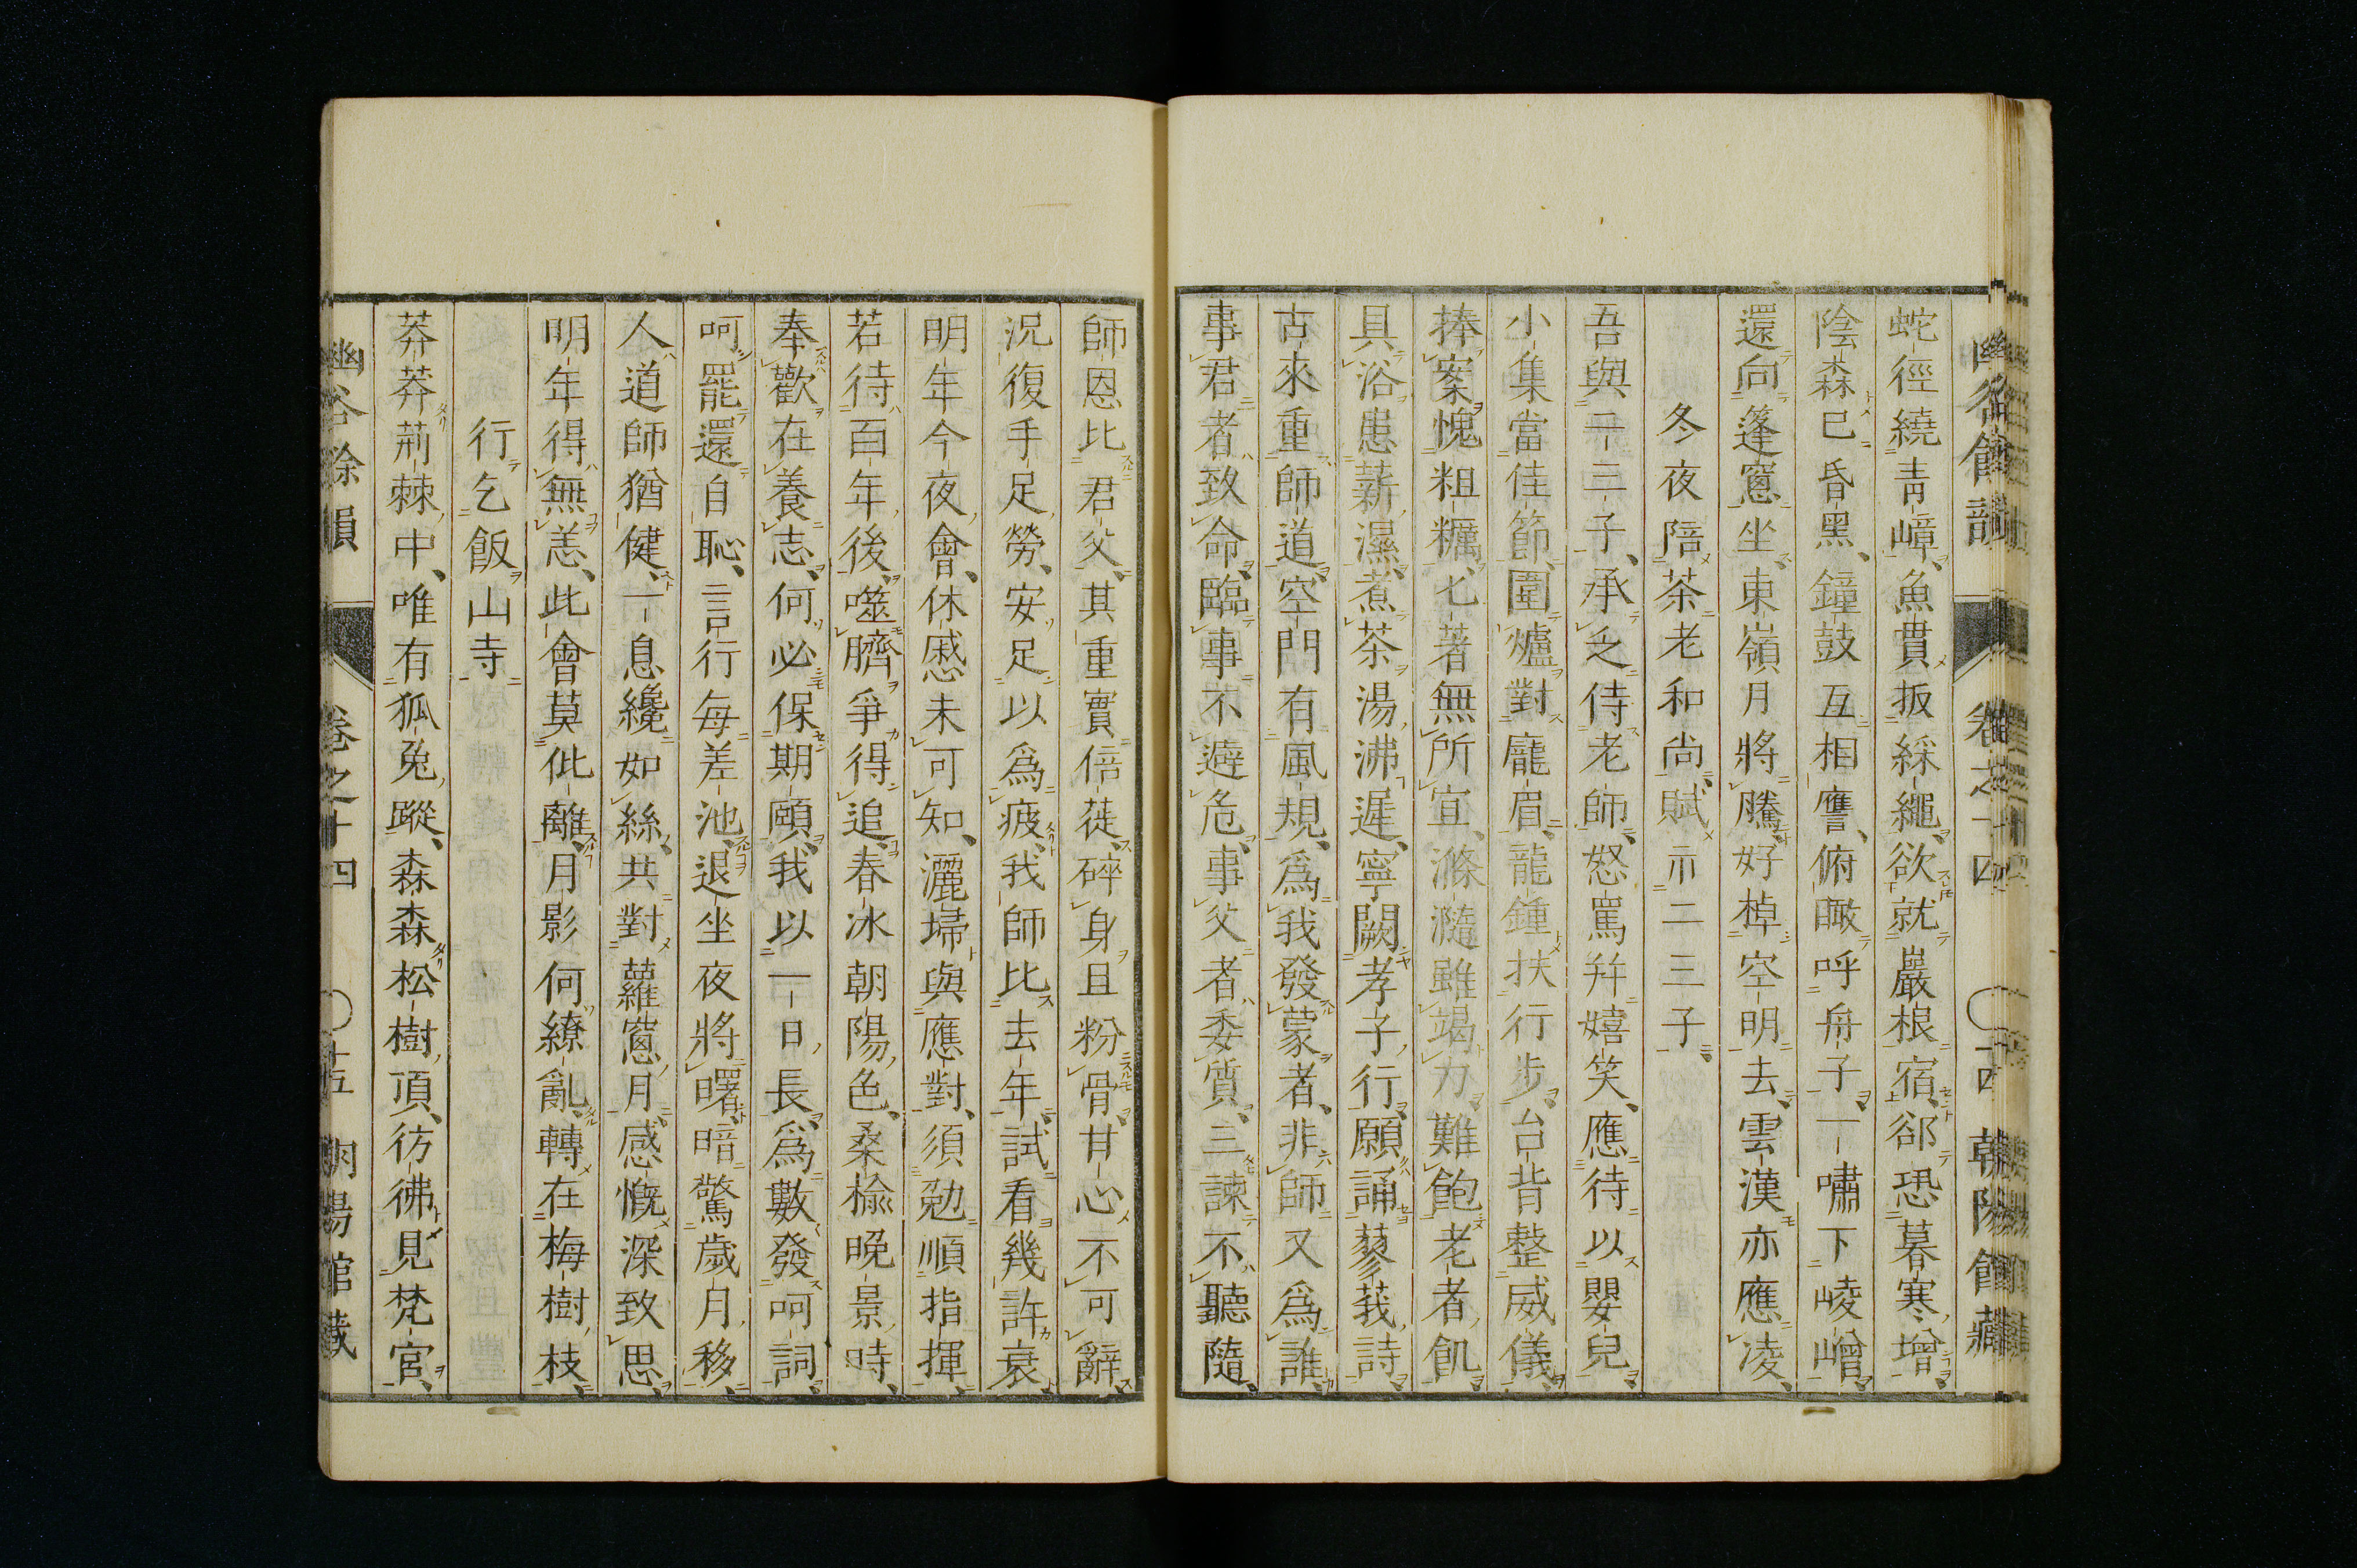 幽谷餘韻 卷之十四 〇十四 朝陽館藏
蛇徑繞靑嶂、魚貫扳綵繩、欲就巖根宿、郤恐暮寒增、
陰森已昏黑、鐘鼓互相譍、俯瞰呼舟子、一嘯下崚嶒、
還向篷窓坐、東嶺月將騰、好棹空明去、雲漢亦應凌、
冬夜陪茶老和尚、賦示二三子
吾與二三子、承乏侍老師、怒罵幷嬉笑、應待以嬰兒、
小集當佳節、圍爐對龐眉、龍鍾扶行步、台背整威儀、
捧案愧粗糲、匕著無所宜、滫瀡雖竭力、難飽老者飢、
具浴患薪濕、煮茶湯沸遲、寧闕孝子行、願誦蓼莪詩、
古來重師道、空門有風規、爲我發蒙者、非師又爲誰、
事君者致命、臨事不避危、事父者委質、三諫不聽隨、
師恩比君父、其重實倍蓰、碎身且粉骨、甘心不可辭、
況復手足勞、安足以爲疲、我師比去年、試看幾許衰、
明年今夜會、休慼未可知、灑埽與應對、須勉順指揮、
若待百年後、噬臍爭得追、春冰朝陽色、桑楡晩景時、
奉歡在養志、何必保期頤、我以一日長、爲數發呵詞、
呵罷還自恥、言行每差池、退坐夜將曙、暗驚歲月移、
人道師猶健、一息纔如絲、共對蘿窓月、感慨深致思、
明年得無恙、此會莫仳離、月影何繚亂、轉在梅樹枝、
行乞飯山寺
莽莽荊棘中、唯有狐兔蹤、森森松樹頂、彷彿見梵宮、
幽谷餘韻 卷之十四 〇十五 朝陽館藏